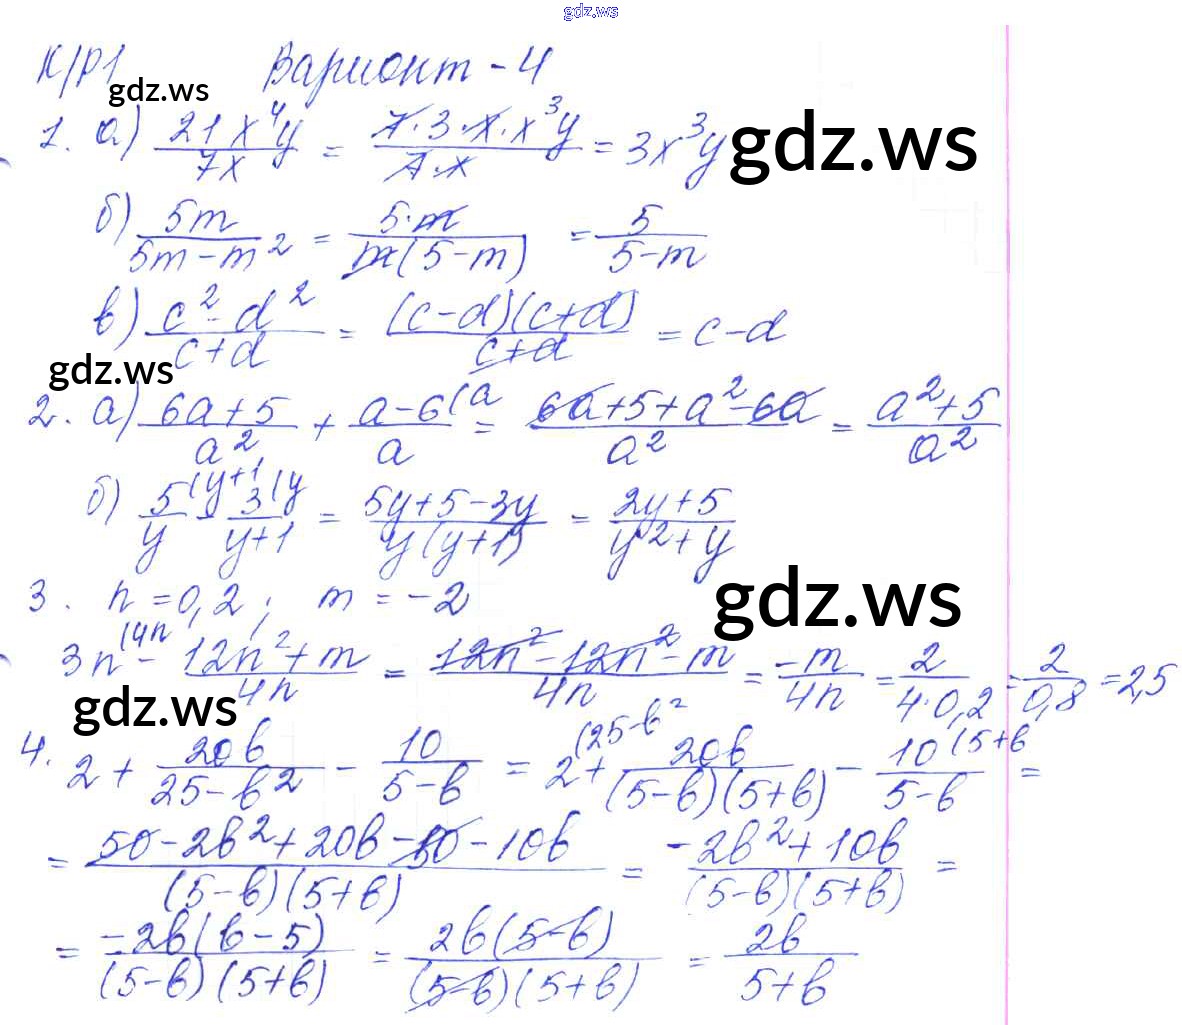 gdz.ws
К/Р1 Вариант - 4
gdz.ws
1. а) 21x⁴y / 7x = 7·3·x·x³y / 7·x = 3x³y gdz.ws
б) 5m / 5m-m² = 5·m / m(5-m) = 5 / 5-m
в) c²-d² / c+d = (c-d)(c+d) / c+d = c-d
gdz.ws
2. а) 6a+5 / a² + a-6 (a / a = 6a+5+a²-6a / a² = a²+5 / a²
б) 5 (y+1 / y - 3 (y / y+1 = 5y+5-3y / y(y+1) = 2y+5 / y²+y
3. n = 0,2; m = -2 gdz.ws
3n (4n - 12n²+m / 4n = 12n²-12n²-m / 4n = -m / 4n = 2 / 4·0,2 = 2 / 0,8 = 2,5
gdz.ws
4. 2 + 20b / 25-b² - 10 / 5-b = 2 (25-b² + 20b / (5-b)(5+b) - 10 (5+b / 5-b =
= 50-2b²+20b-50-10b / (5-b)(5+b) = -2b²+10b / (5-b)(5+b) =
= -2b(b-5) / (5-b)(5+b) = 2b(5-b) / (5-b)(5+b) = 2b / 5+b